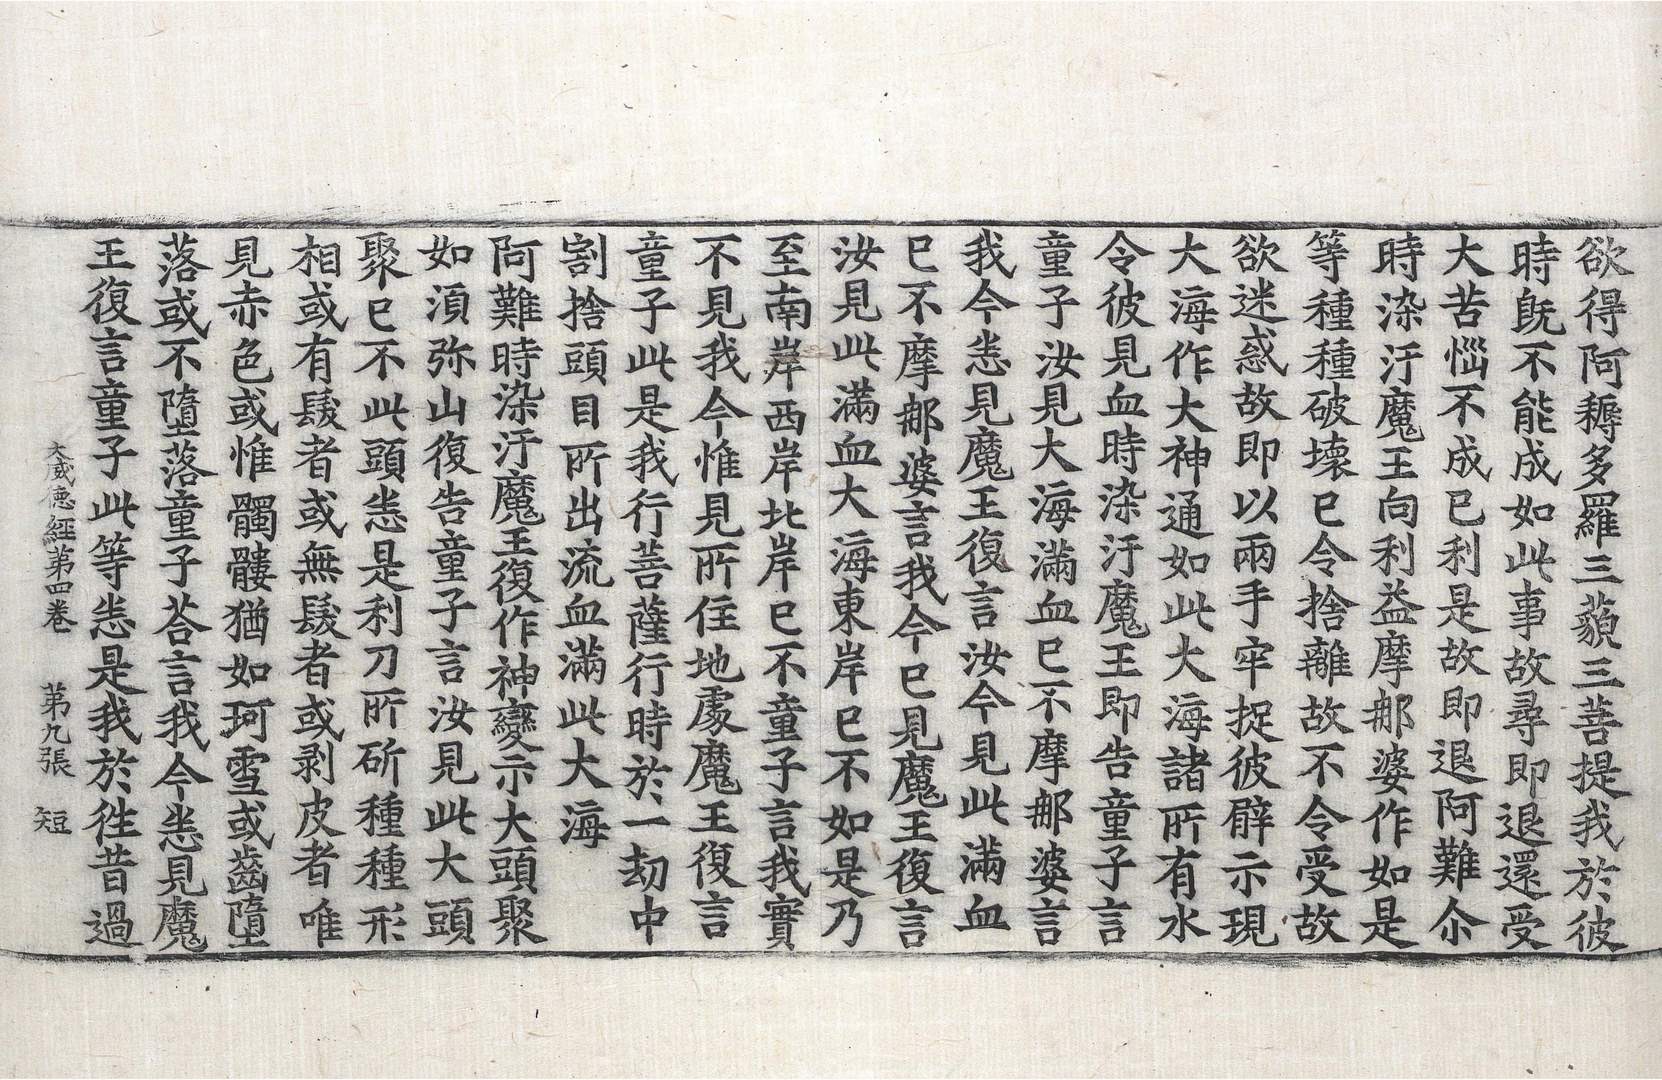 欲得阿耨多羅三藐三菩提我於彼
時旣不能成如此事故尋即退還受
大苦惱不成已利是故即退阿難尒
時染汙魔王向利益摩郍婆作如是
等種種破壞已令捨離故不令受故
欲迷惑故即以兩手牢捉彼臂示現
大海作大神通如此大海諸所有水
令彼見血時染汙魔王即告童子言
童子汝見大海滿血已不摩郍婆言
我今悉見魔王復言汝今見此滿血
已不摩郍婆言我今已見魔王復言
汝見此滿血大海東岸已不如是乃
至南岸西岸北岸已不童子言我實
不見我今惟見所住地處魔王復言
童子此是我行菩薩行時於一劫中
割捨頭目所出流血滿此大海
阿難時染汙魔王復作神變示大頭聚
如湏弥山復告童子言汝見此大頭
聚已不此頭悉是利刀所斫種種形
相或有髮者或無髮者或剥皮者唯
見赤色或惟髑髏猶如珂雪或齒墮
落或不墮落童子荅言我今悉見魔
王復言童子此等悉是我於徃昔過
大威德經第四卷 第九張 短